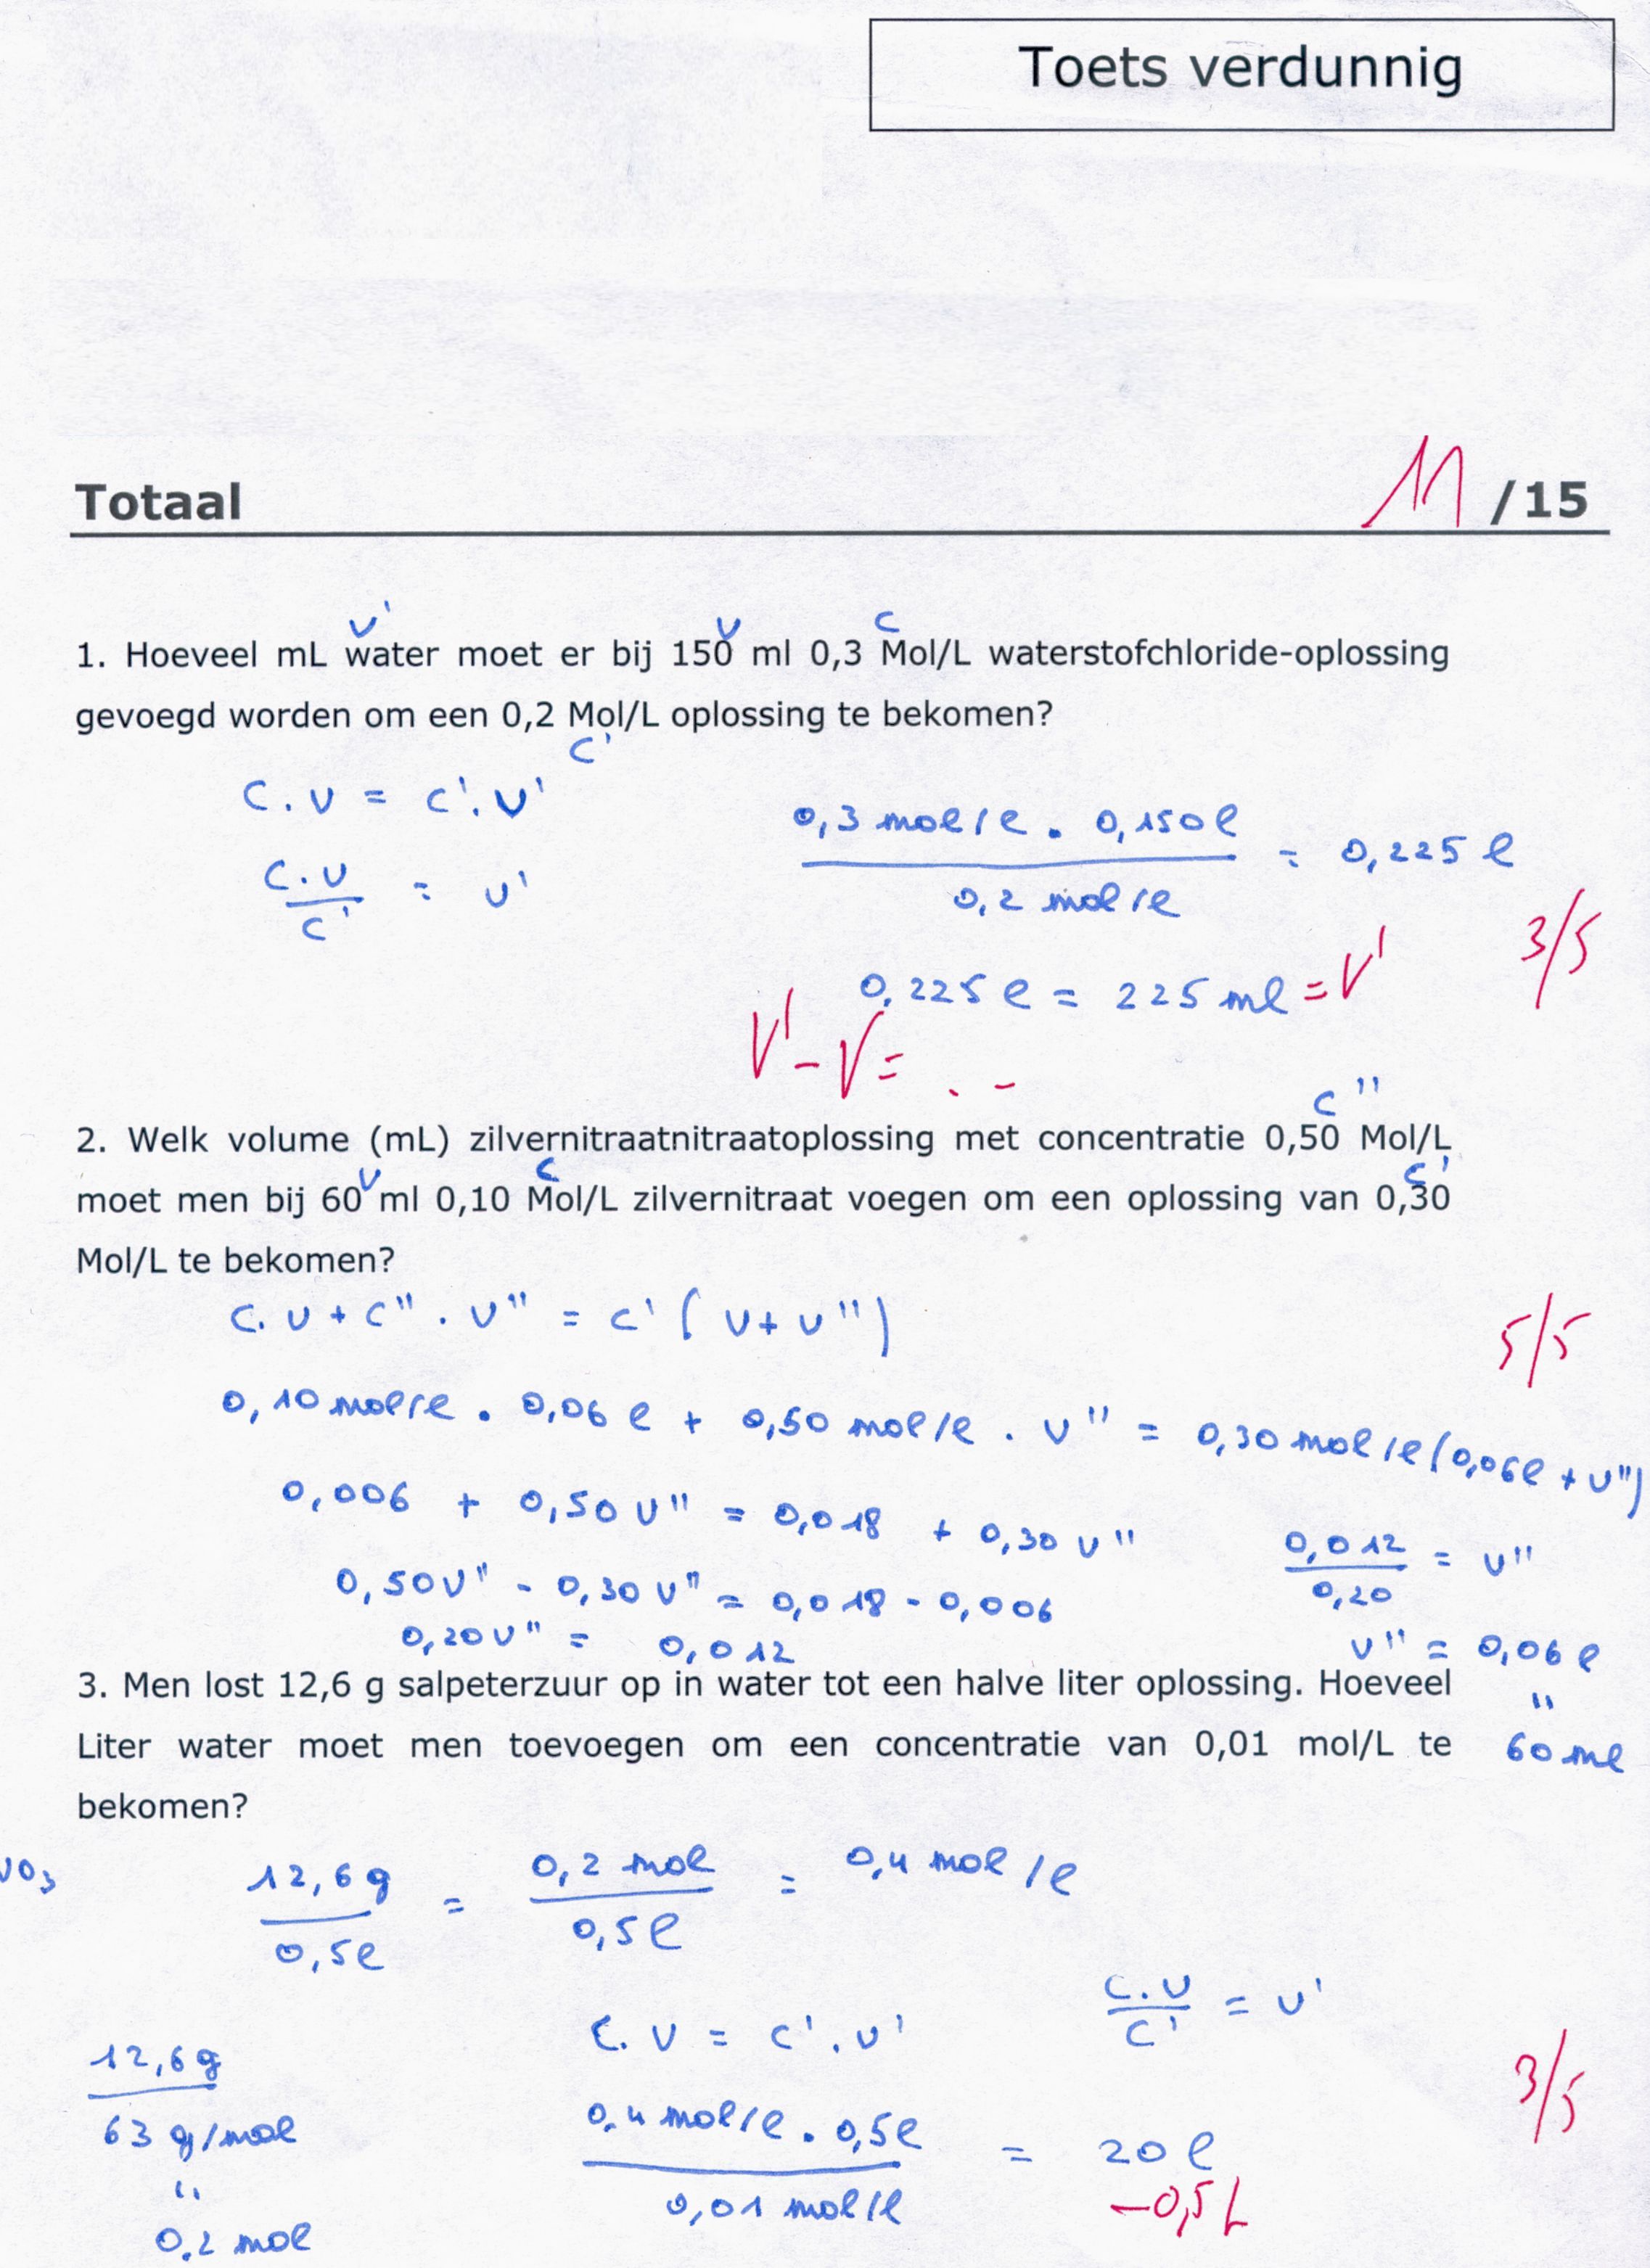 Toets verdunnig
Totaal 11 /15
v' v c
1. Hoeveel mL water moet er bij 150 ml 0,3 Mol/L waterstofchloride-oplossing
gevoegd worden om een 0,2 Mol/L oplossing te bekomen?
c'
c.v = c'.v'
0,3 mol/l . 0,150l
= 0,225 l
0,2 mol/l
c.v
= v'
c'
3/5
0,225 l = 225 ml = V'
V' - V = . -
c''
2. Welk volume (mL) zilvernitraatnitraatoplossing met concentratie 0,50 Mol/L
v c c'
moet men bij 60 ml 0,10 Mol/L zilvernitraat voegen om een oplossing van 0,30
Mol/L te bekomen?
c.v + c''.v'' = c' (v + v'')
5/5
0,10 mol/l . 0,06 l + 0,50 mol/l . v'' = 0,30 mol/l (0,06l + v'')
0,006 + 0,50 v'' = 0,018 + 0,30 v''
0,012
= v''
0,20
0,50v'' - 0,30 v'' = 0,018 - 0,006
0,20v'' = 0,012
v'' = 0,06 l
"
60 ml
3. Men lost 12,6 g salpeterzuur op in water tot een halve liter oplossing. Hoeveel
Liter water moet men toevoegen om een concentratie van 0,01 mol/L te
bekomen?
12,6 g
0,5l
=
0,2 mol
0,5l
= 0,4 mol/l
c.v
= v'
c'
c.v = c'.v'
12,6g
63 g/mol
"
0,2 mol
0,4 mol/l . 0,5l
= 20 l
0,01 mol/l
-0,5 L
3/5